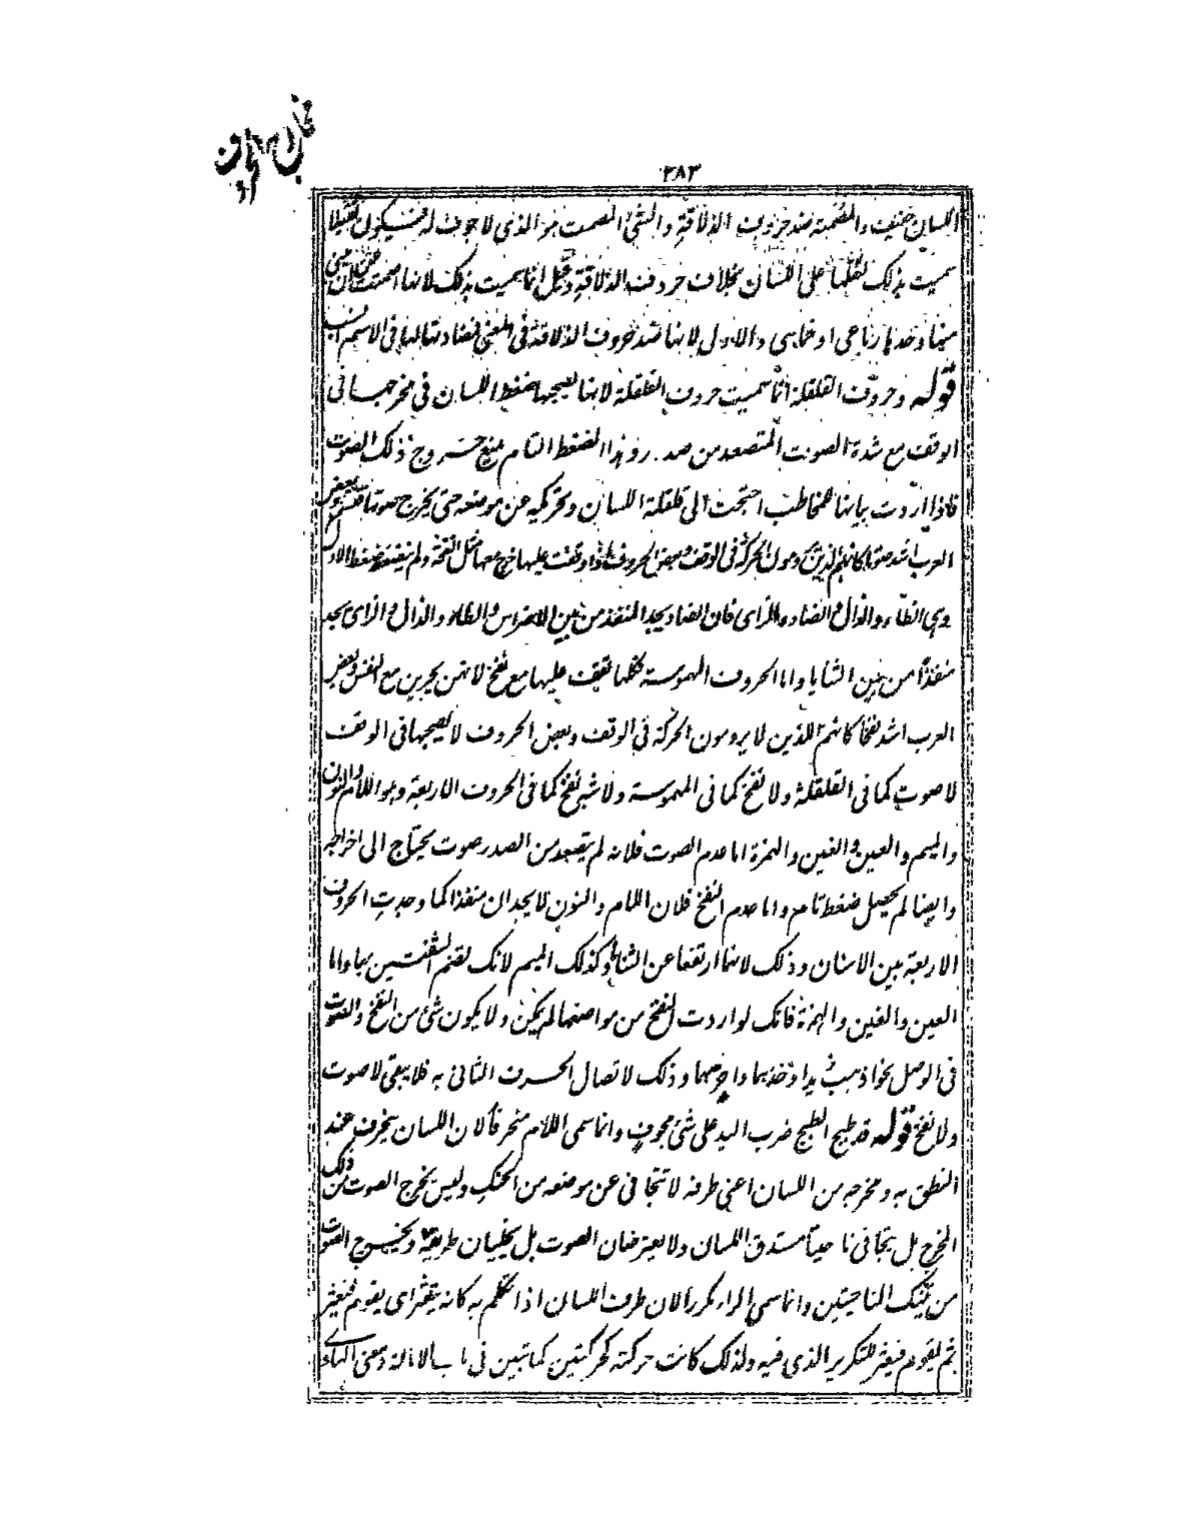 مخارج الحروف
٢٨٣
اللسان خفيفة والمصمتة ضد حروف الذلاقة والشئ المصمت هو الذى لا جوف له فيكون ثقيلا
سميت بذلك لثقلها على اللسان بخلاف حروف الذلاقة وقيل انما سميت بذلك لانها اصمتت عن ان يبنى
منها وحدها رباعى او خماسى والاول لانها ضد حروف الذلاقة فى المعنى فمضادتها لها فى الاسم انسب
قوله وحروف القلقلة انما سميت حروف القلقلة لانها يصحبها ضغط اللسان فى مخرجها فى
الوقف مع شدة الصوت المتصعد من الصدر وهذا الضغط التام يمنع خروج ذلك الصوت
فاذا اردت بيانها للمخاطب احتجت الى قلقلة اللسان وتحريكه عن موضعه حتى يخرج صوتها فتسمع وبعض
العرب اشد صوتا كانهم الذين يرومون الحركة فى الوقف وبعض الحروف اذا وقفت عليها خرج معها مثل النفخة ولم ينضغط ضغط الاول
وهى الظاء والذال والضاد والزاى فان الضاد يجد المنفذ من بين الاضراس والظاء والذال والزاى يجد
منفذا من بين الثنايا واما الحروف المهموسة فكلها تقف عليها مع نفخ لانهن يجرين مع النفس وبعض
العرب اشد نفخا كانهم الذين لا يرومون الحركة فى الوقف وبعض الحروف لا يصحبها فى الوقف
لا صوت كما فى القلقلة ولا نفخ كما فى المهموسة ولا شبه نفخ كما فى الحروف الاربعة وهو اللام والنون
والميم والعين والغين والهمزة اما عدم الصوت فلانه لم يتصعد من الصدر صوت يحتاج الى اخراجه
وايضا لم يحصل ضغط تام واما عدم النفخ فلان اللام والنون لا يجدان منفذا كما وجدت الحروف
الاربعة بين الاسنان وذلك لانهما ارتفعا عن الثنايا وكذلك الميم لانك تضم الشفتين بها واما
العين والغين والهمزة فانك لو اردت النفخ من مواضعها لم يكن ولا يكون شئ من النفخ والصوت
فى الوصل نحو اذهب زيدا وخذهما واحرسهما وذلك لاتصال الحرف الثانى به فلا يبقى لا صوت
ولا نفخ قوله قد طبج الطبج ضرب اليد على شئ مجوف وانما سمى اللام منحرفا لان اللسان ينحرف عند
النطق به ومخرجه من اللسان اعنى طرفه لا تتجافى عن موضعه من الحنك وليس يخرج الصوت من ذلك
المخرج بل يتجافى ناحيتا مستدق اللسان ولا يعترضان الصوت بل يخليان طريقه ويخرج الصوت
من تينك الناحيتين وانما سمى الراء مكررا لان طرف اللسان اذا تكلم به كانه يتعثر اى يقوم فيعثر
ثم يقوم فيعثر للتكرير الذى فيه ولذلك كانت حركته كحركتين كما تبين فى باب الامالة ومعنى الهاء